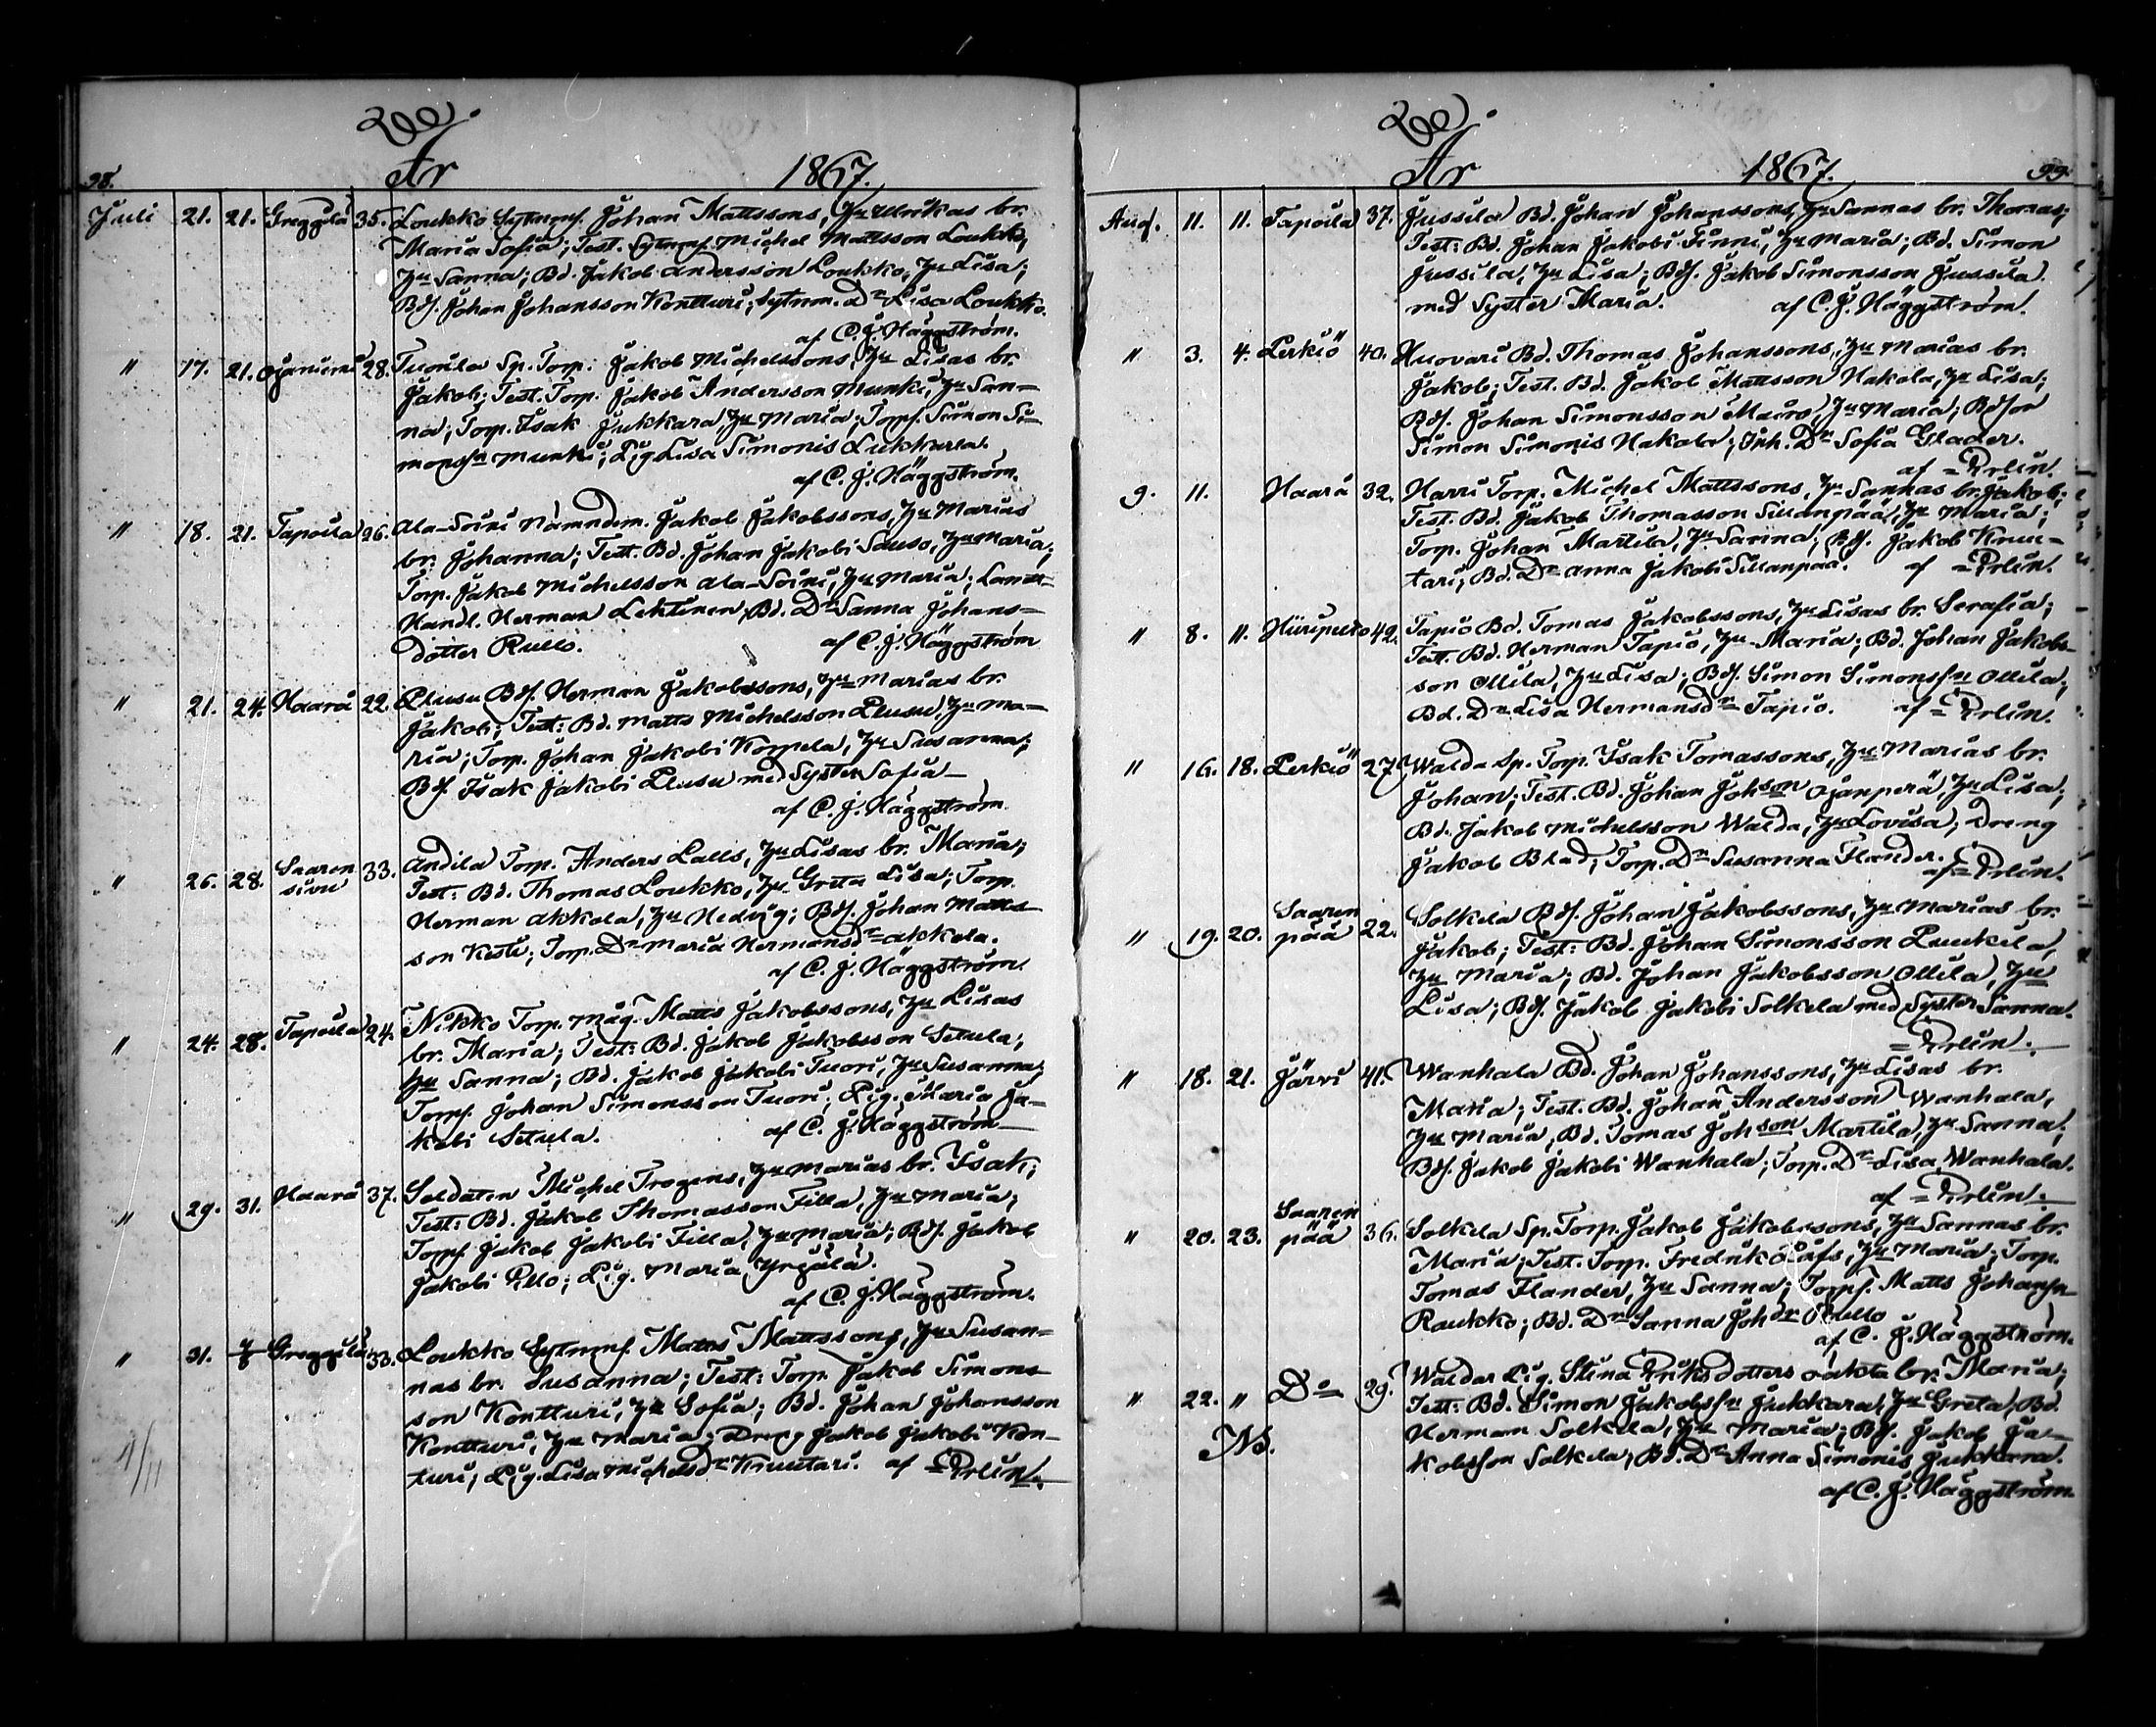 98. År 1867.
Juli 21. 21. Greggilä 35. Loukko Sytnmf. Johan Mattssons, Hu Ulrikas br.
Maria Sofia; Test. Sytnmf. Michel Mattsson Loukko,
Hu Sanna; Bd. Jakob Andersson Loukko, Hu Lisa;
Bdf. Johan Johansson Kontturi; Sytnm. Dr Lisa Loukko.
af C. J. Häggström.
" 17. 21. Ojaniemi 28. Tuorila Sp. Torp. Jakob Michelssons, Hu Lisas br.
Jakob; Test. Torp. Jakob Andersson Munki, Hu San-
na; Torp. Isak Jukkara, Hu Maria; Torpf. Simon Si-
monsfn Munki; Pig. Lisa Simonis Lukkarla.
af C. J. Häggström.
" 18. 21. Tapoila 26. Ala-Soini Nämndem. Jakob Jakobssons, Hu Marias
br. Johanna; Test. Bd. Johan Jakobi Sauso, Hu Maria;
Torp. Jakob Michelsson Ala-Soini, Hu Maria; Landt-
Handl. Herman Lehtinen, Bd. Dr Sanna Johans-
dotter Rullo. af C. J. Häggström
" 21. 24. Haara 22. Plusu Bdf. Herman Jakobssons, Hu Marias br.
Jakob; Test: Bd. Matts Michelsson Plusu, Hu Ma-
ria; Torp. Johan Jakobi Korpela, Hu Susanna;
Bdf. Isak Jakobi Plusu med Syster Sofia
af C. J. Häggström.
" 26. 28. Saaren
sivu 33. Andila Torp. Anders Lalls, Hu Lisas br. Maria;
Test: Bd. Thomas Loukko, Hu Greta Lisa; Torp.
Herman Akkola, Hu Hedvig; Bdf. Johan Matts-
son Keste; Torp. Dr Maria Hermansdr Akkola.
af C. J. Häggström.
" 24. 28. Tapoila 24. Nikko Torp. Måg. Matts Jakobssons, Hu Lisas
br. Maria; Test: Bd. Jakob Jakobsson Setula,
Hu Sanna; Bd. Jakob Jakobi Tuori, Hu Susanna;
Torpf. Johan Simonsson Tuori; Pig. Maria Ja-
kobi Setula. af C. J. Häggström
" 29. 31. Haara 37. Soldaten Michel Trogens, Hu Marias br. Isak;
Test: Bd. Jakob Thomasson Filla, Hu Maria;
Torpf. Jakob Jakobi Filla, Hu Maria; Bdf. Jakob
Jakobi Pllo; Pig. Maria Yrjälä.
af C. J. Häggström.
" 31. Greggilä 33. Loukko Sytnmf. Matts Mattssons, Hu Susan-
nas br. Susanna; Test: Torp. Jakob Simons-
son Kontturi, Hu Sofia; Bd. Johan Johansson
Kontturi, Hu Maria; Dreng Jakob Jakobi Kon-
turi, Pig. Lisa Michelsdr Knuutari. af Erlin.
4/11
År 1867. 99.
Aug. 11. 11. Tapoila 37. Jussila Bd. Johan Johanssons, Hu Sannas br. Thomas;
Test: Bd. Johan Jakobi Finni, Hu Maria; Bd. Simon
Jussila, Hu Lisa; Bdf. Jakob Simonsson Jussila
med Syster Maria. af C. J. Häggström.
" 3. 4. Perkiö 40. Huovari Bd. Thomas Johanssons, Hu Marias br.
Jakob; Test. Bd. Jakob Mattsson Hakola, Hu Lisa;
Bdf. Johan Simonsson Mairo, Hu Maria; Bdson
Simon Simonis Hakola; Inh. Dr Sofia Glader.
af Erlin.
9. 11. Haara 32. Harri Torp. Michel Mattssons, Hu Sannas br. Jakob;
Test. Bd. Jakob Thomasson Sillanpää, Hu Maria;
Torp. Johan Martila, Hu Sanna; Bdf. Jakob Knuu-
tari; Bd. Dr Anna Jakobi Sillanpää. af Erlin.
" 8. 11. Hiiripelto 42. Tapio Bd. Tomas Jakobssons, Hu Lisas br. Serafia;
Test. Bd. Herman Tapio, Hu Maria; Bd. Johan Jakobs-
son Ollila, Hu Lisa; Bdf. Simon Simonsfn Ollila,
Bd. Dr Lisa Hermansdr Tapio. af Erlin.
" 16. 18. Perkiö 27. Walda Sp. Torp. Isak Tomassons, Hu Marias br.
Johan; Test. Bd. Johan Johson Ojanperä, Hu Lisa;
Bd. Jakob Michelsson Walda, Hu Lovisa; Dreng
Jakob Blad; Torp. Dr Susanna Flander.
af Erlin.
" 19. 20. Saaren
pää 22. Solkela Bdf. Johan Jakobssons, Hu Marias br.
Jakob; Test: Bd. Johan Simonsson Puukila,
Hu Maria; Bd. Johan Jakobsson Ollila, Hu
Lisa; Bdf. Jakob Jakobi Solkela med Syster Sanna.
Erlin.
" 18. 21. Järvi 41. Wanhala Bd. Johan Johanssons, Hu Lisas br.
Maria; Test. Bd. Johan Andersson Wanhala,
Hu Maria, Bd. Tomas Johson Martila, Hu Sanna;
Bdf. Jakob Jakobi Wanhala; Torp. Dr Lisa Wanhala.
af Erlin.
" 20. 23. Saaren
pää 36. Solkela Sp. Torp. Jakob Jakobssons, Hu Sannas br.
Maria; Test. Torp. Fredrik Hu Maria; Torp.
Tomas Flander, Hu Sanna; Torpf. Matts Johansfn
Raukko; Bd. Dr Sanna Johdr Rullo
af C. J. Häggström.
" 22. " Do 29. Waldar Pig. Stina Eriksdotters oäkta br. Maria;
Test: Bd. Simon Jakobsfn Jukkara, Hu Greta, Bd.
Herman Solkela, Hu Maria; Bdf. Jakob Ja-
kobsson Solkela, Bd. Dr Anna Simonis Jukkara.
af C. J. Häggström.